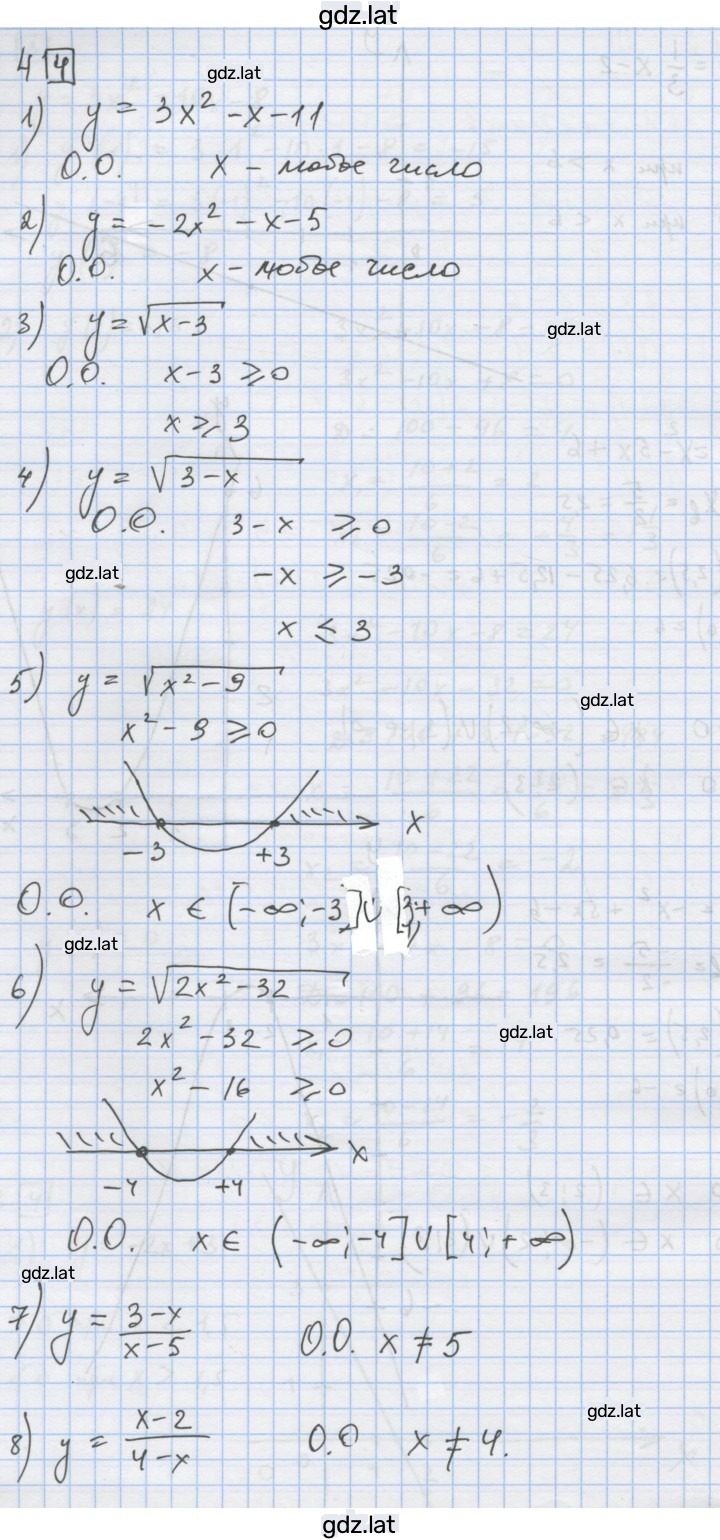 gdz.lat
4 4
gdz.lat
1) y = 3x² - x - 11
О.О. x - любое число
2) y = -2x² - x - 5
О.О. x - любое число
3) y = √(x-3)
gdz.lat
О.О. x-3 ⩾ 0
x ⩾ 3
4) y = √(3-x)
О.О. 3-x ⩾ 0
gdz.lat
-x ⩾ -3
x ≤ 3
5) y = √(x²-9)
gdz.lat
x² - 9 ⩾ 0
x
-3 +3
О.О. x ∈ [-∞; -3] ∪ [3; +∞)
gdz.lat
6) y = √(2x²-32)
gdz.lat
2x² - 32 ⩾ 0
x² - 16 ⩾ 0
x
-4 +4
О.О. x ∈ (-∞; -4] ∪ [4; +∞)
gdz.lat
7) y = (3-x)/(x-5) О.О. x ≠ 5
gdz.lat
8) y = (x-2)/(4-x) О.О x ≠ 4.
gdz.lat